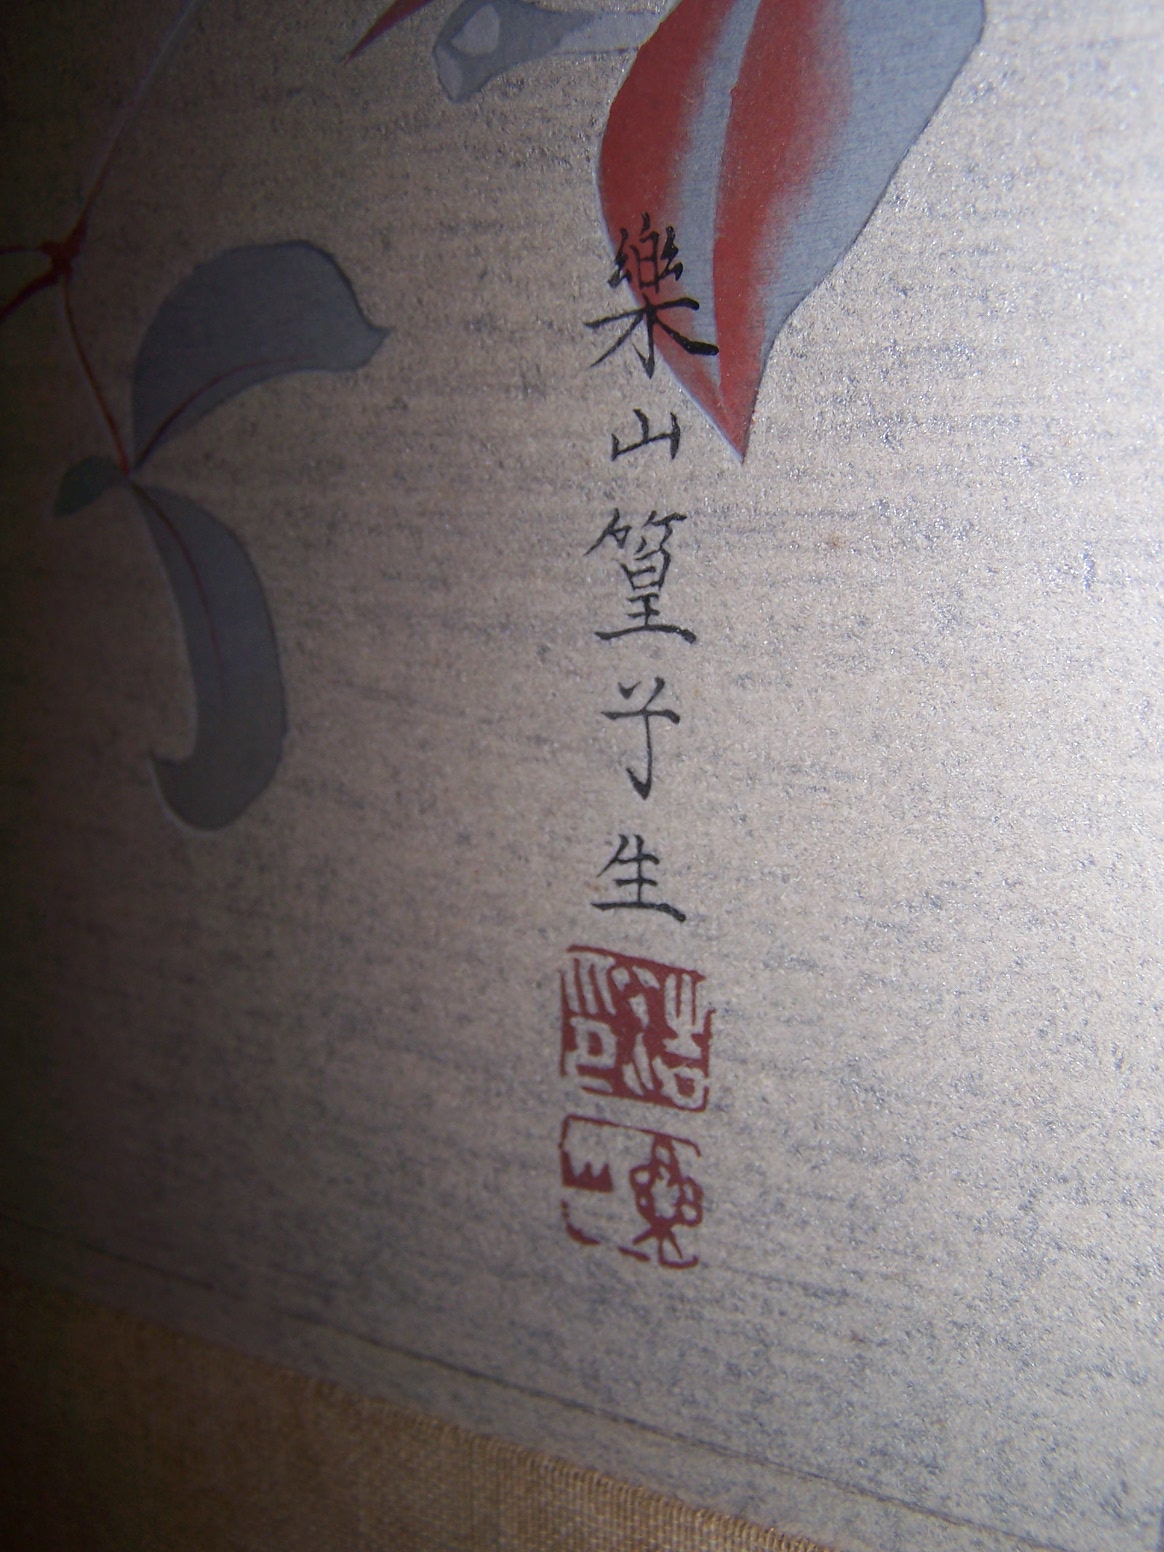 樂山篁子生